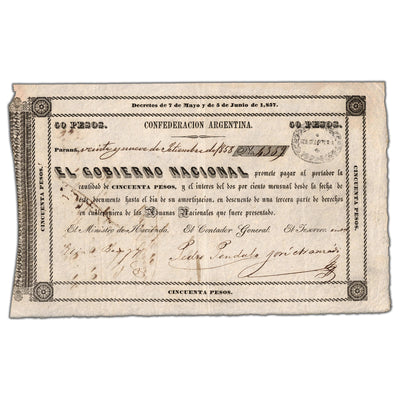 Decretos de 7 de Mayo y de 5 de Junio de 1,857.
60 PESOS. 60 PESOS.
CONFEDERACION ARGENTINA.
Paraná, veinte y nueve de Setiembre de 1858
EL GOBIERNO NACIONAL promete pagar al portador la
cantidad de CINCUENTA PESOS, y el interes del dos por ciento mensual desde la fecha de
este documento hasta el dia de su amortizacion, en descuento de una tercera parte de derechos
en cualesquiera de las Aduanas Nacionales que fuere presentado.
El Ministro de Hacienda. El Contador General. El Tesorero
Pedro Pondal José
CINCUENTA PESOS.
CINCUENTA PESOS.
CINCUENTA PESOS.